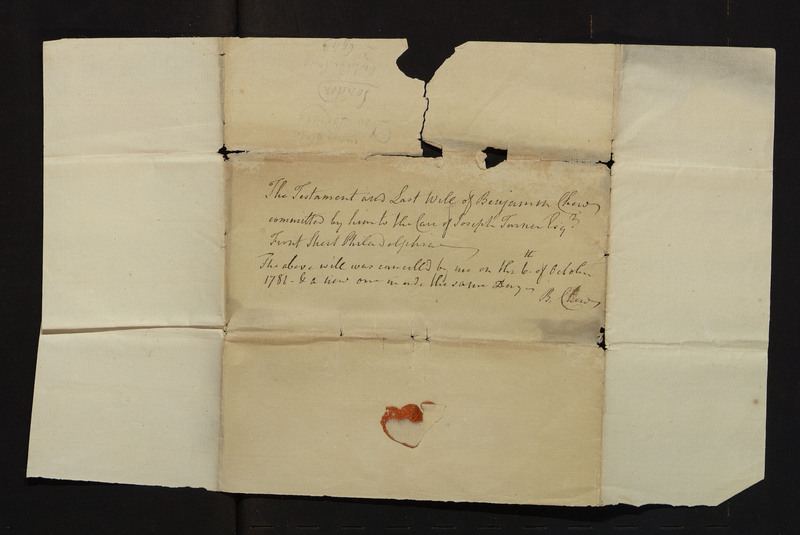 The Testament and Last Will of Benjamin Chew
committed by him to the Care of Joseph Turner Esqr.
Front Street Philadelphia
The above will was cancelled by me on the 6th of October
1781 - & a new one made this same Day -
B. Chew